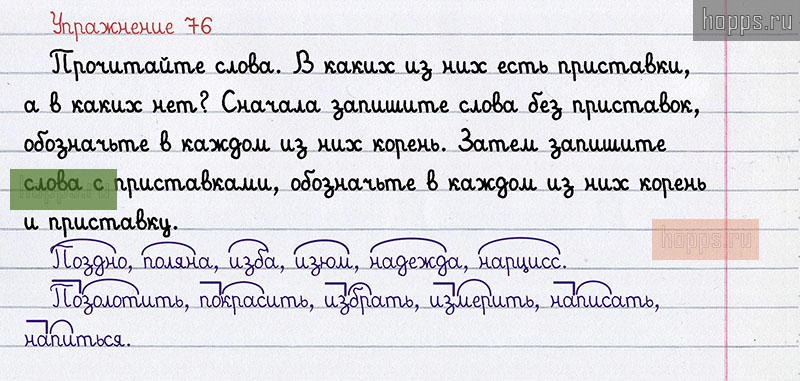 hopps.ru
Упражнение 76
Прочитайте слова. В каких из них есть приставки,
а в каких нет? Сначала запишите слова без приставок,
обозначьте в каждом из них корень. Затем запишите
слова с приставками, обозначьте в каждом из них корень
и приставку.
hopps.ru
Поздно, поляна, изба, изюм, надежда, нарцисс.
Позолотить, покрасить, избрать, измерить, написать,
напиться.